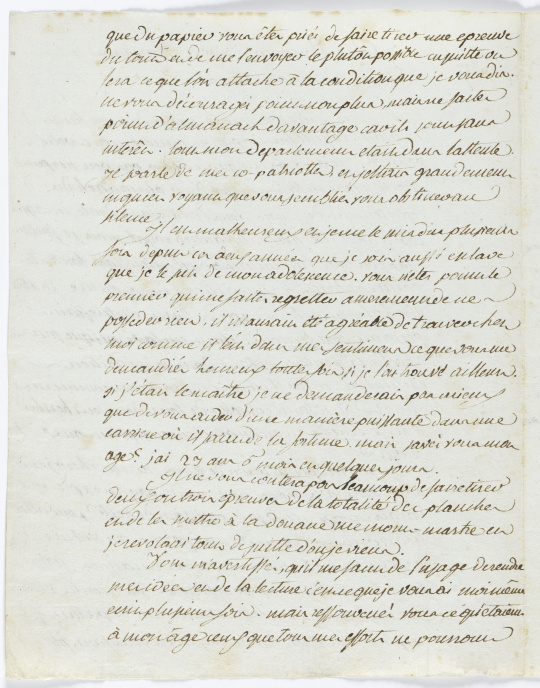 que du papier vous êtes prié de faire tirer une epreuve
du tout et de me l'envoyer le plutôt possible ensuitte on
fera ce que l'on attache à la condition que je vous dis.
ne vous découragez plus mais ne faites
point d'almanach davantage car ils sont sans
interêt. tout mon departement etait dans l'attente
je parle de mes co-patriottes et j'etais grandement
inquiet voyant que vous sembliez vous obstiner au
silence
Il est malheureux et je me le suis dis plusieurs
fois depuis ces ans que je sois aussi esclave
que je le suis de mon adolescence. vous n'etes point le
premier qui me faites regretter amerement de ne
posseder rien. il m'aurait été agréable de trouver chez
moi comme il est dans mes sentimens ce que vous me
demandiez heureux toute fois si je l'ai trouvé ailleurs.
si j'étais le maître je ne demanderais pas mieux
que de vous aider d'une manière puissante dans une
carriere où il faut de la fortune mais savez vous mon
age? j'ai 23 ans 6 mois et quelques jours.
Il ne vous coutera pas beaucoup de faire tirer
deux ou trois epreuves de la totalité des planches
et de les mettre à la douane me mont-martre et
je revolerai tout de suitte d'où je viens.
Vous m'avertissez qu'il me faut de l'usage de rendre
mes idées et de la lecture c'est ce que je vous ai moi même
écrit plusieurs fois. mais ressouvenez vous ce qu'etaient
à mon age ceux que tous mes efforts ne pourront